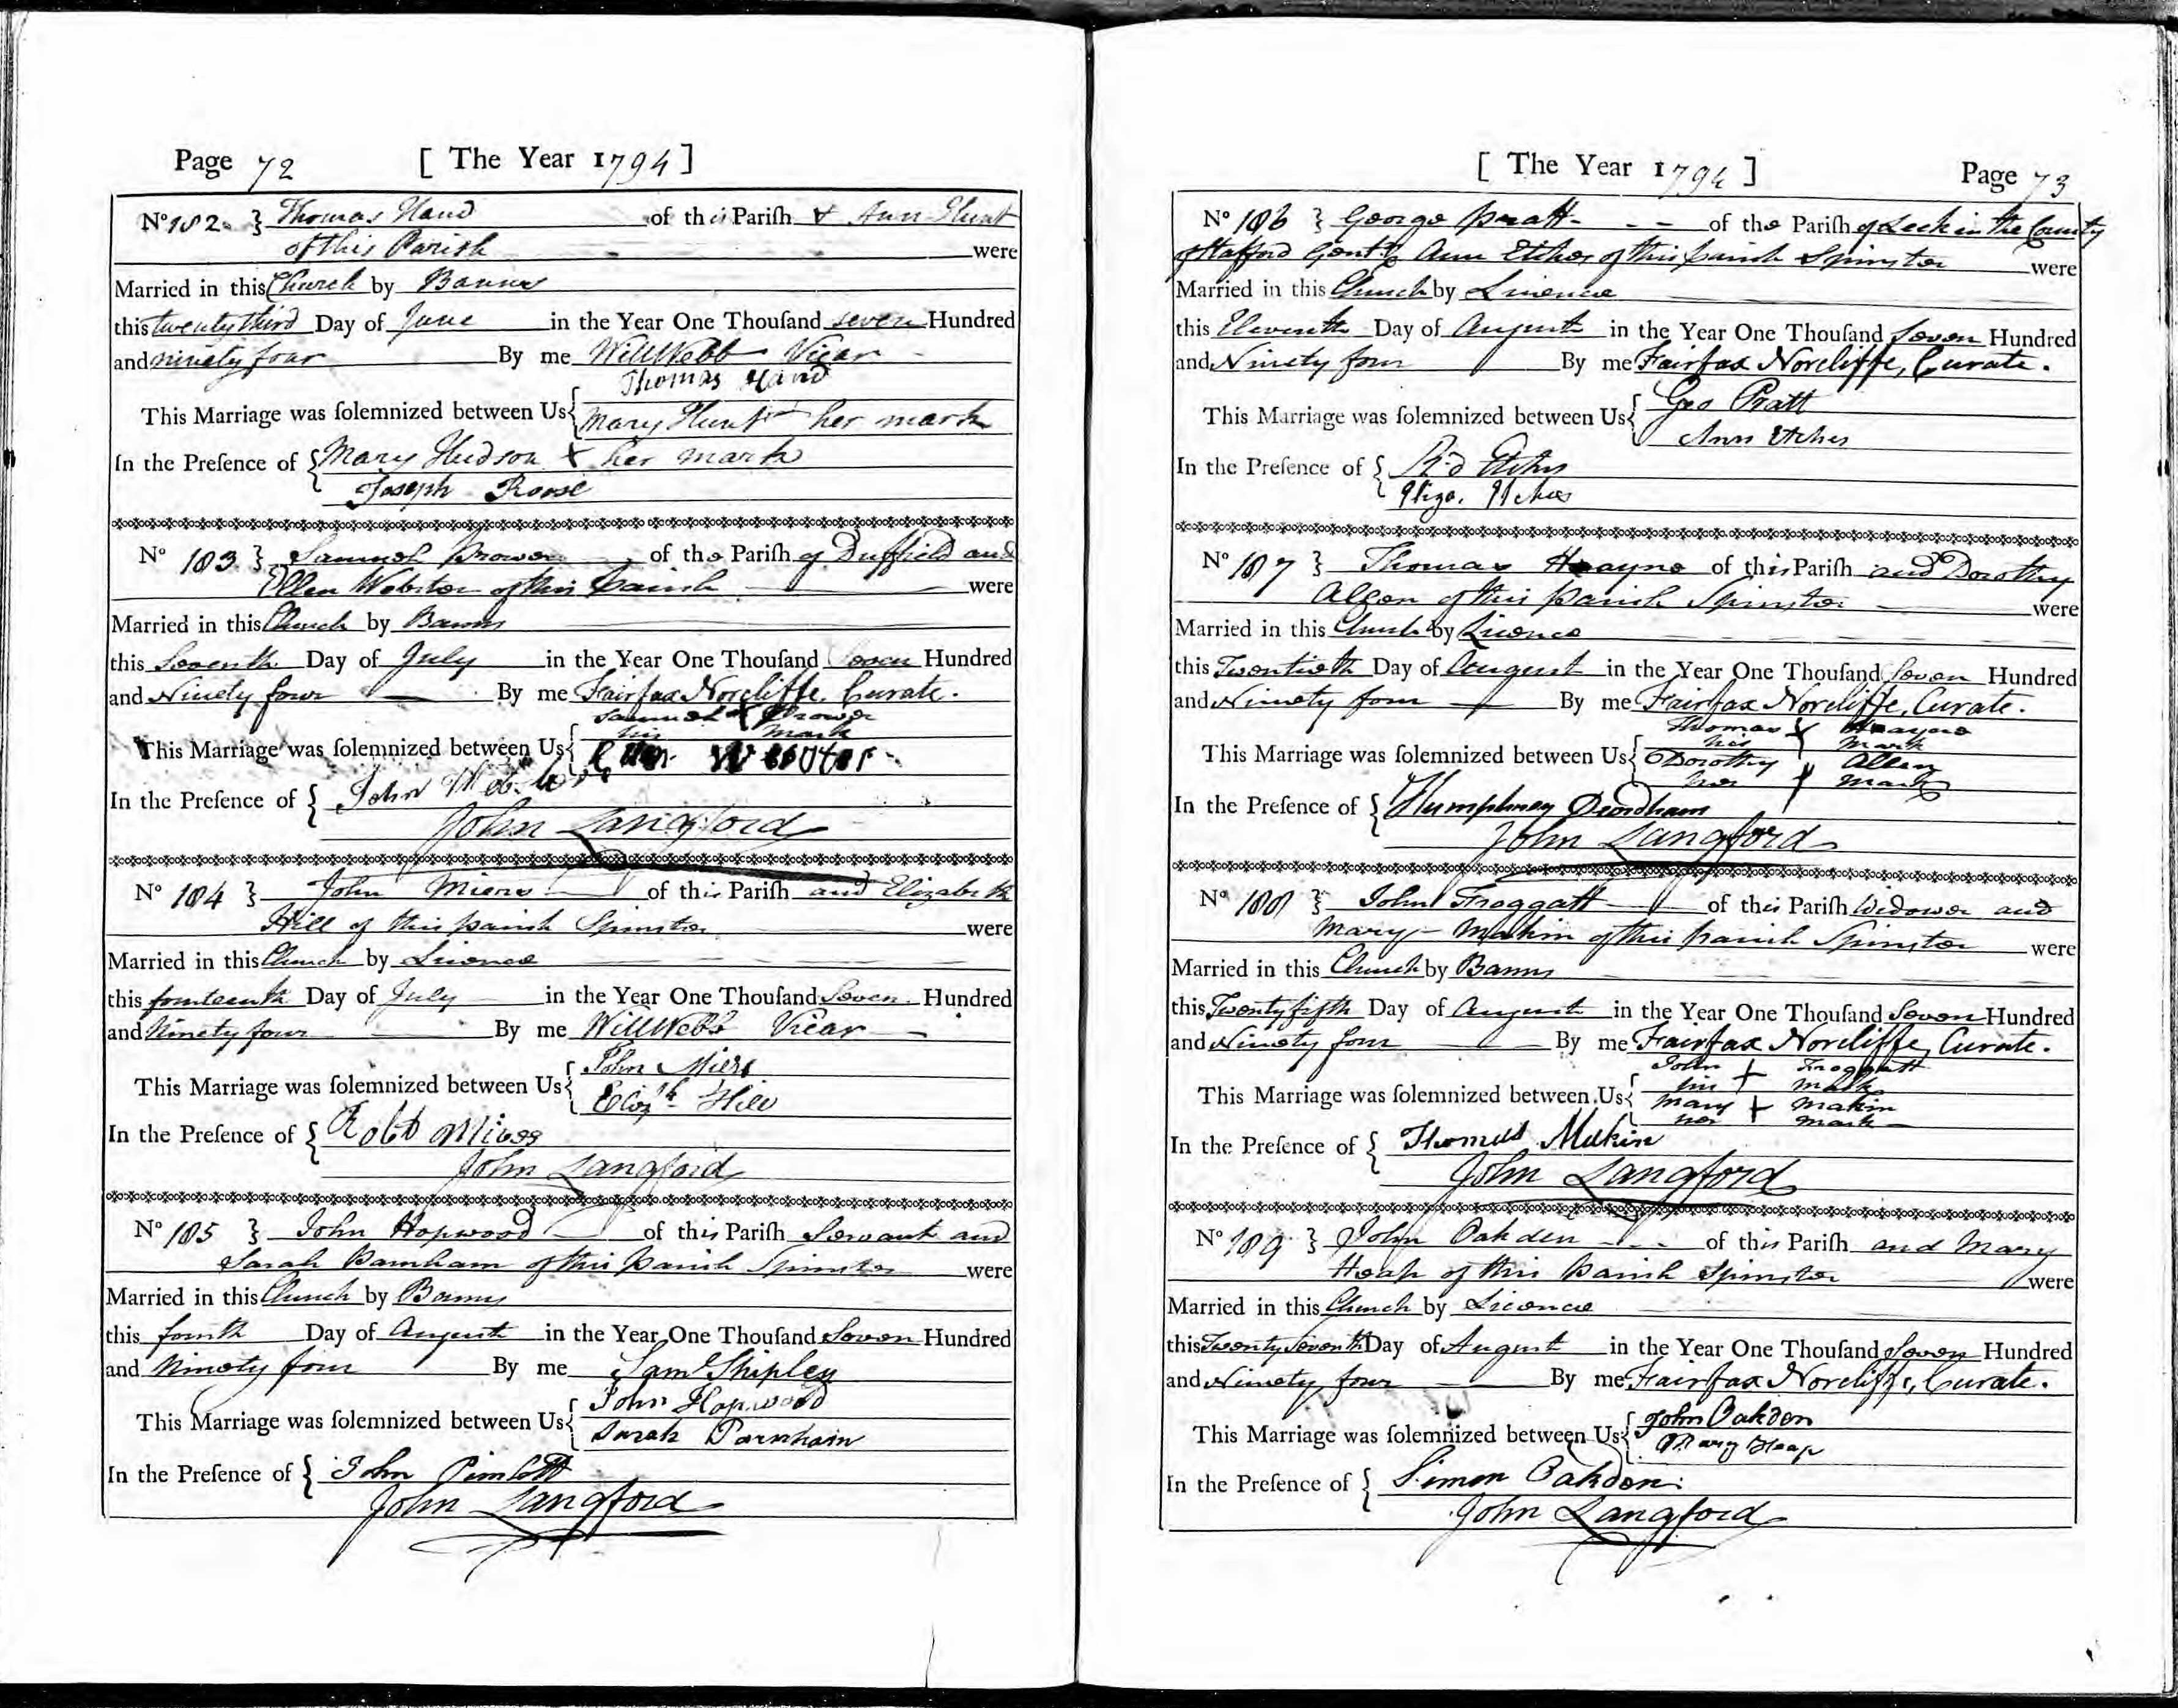 Page 72 [ The Year 1794 ]
No 182 } Thomas Hand of this Parish & Ann Hunt
of this Parish were
Married in this Church by Banns
this twenty third Day of June in the Year One Thousand seven Hundred
and ninety four By me Will Webb Vicar
Thomas Hand
This Marriage was solemnized between Us {
Mary Hunt her mark
In the Presence of { Mary Hudson X her mark
Joseph Roose
No 183 } Samuel Brower of the Parish of Duffield and
Ellen Webster of this Parish were
Married in this Church by Banns
this Seventh Day of July in the Year One Thousand Seven Hundred
and Ninety four By me Fairfax Norcliffe, Curate.
Samuel X Brower
his mark
This Marriage was solemnized between Us {
Webster
In the Presence of { John Webster
John Langford
No 184 } John Miers of this Parish and Elizabeth
Hill of this parish Spinster were
Married in this Church by Licence
this fourteenth Day of July in the Year One Thousand Seven Hundred
and Ninety four By me Will Webb Vicar
John Miers
This Marriage was solemnized between Us {
Elizth Hill
In the Presence of { Robt Miers
John Langford
No 185 } John Hopwood of this Parish Servant and
Sarah Barnham of this parish Spinster were
Married in this Church by Banns
this fourth Day of August in the Year One Thousand Seven Hundred
and Ninety four By me Saml Shipley
John Hopwood
This Marriage was solemnized between Us {
Sarah Parnham
In the Presence of { John Pimlott
John Langford
[ The Year 1794 ] Page 73
No 186 } George Pratt of the Parish of Leek in the County
of Stafford Gent. & Ann Etches of this parish Spinster were
Married in this Church by Licence
this Eleventh Day of August in the Year One Thousand Seven Hundred
and Ninety four By me Fairfax Norcliffe, Curate.
Geo Pratt
This Marriage was solemnized between Us {
Ann Etches
In the Presence of { Rd Etches
Eliza. Etches
No 187 } Thomas Hayne of this Parish and Dorothy
Allen of this parish Spinster were
Married in this Church by Licence
this Twentieth Day of August in the Year One Thousand Seven Hundred
and Ninety four By me Fairfax Norcliffe, Curate.
Thomas X Hayne
his mark
This Marriage was solemnized between Us {
Dorothy Allen
her X mark
In the Presence of { Humphrey
John Langford
No 188 } John Froggatt of this Parish Widower and
Mary Makin of this parish Spinster were
Married in this Church by Banns
this Twenty fifth Day of August in the Year One Thousand Seven Hundred
and Ninety four By me Fairfax Norcliffe, Curate.
John + Froggatt
his mark
This Marriage was solemnized between Us {
Mary + Makin
her mark
In the Presence of { Thomas Makin
John Langford
No 189 } John Oakden of this Parish and Mary
Heap of this parish Spinster were
Married in this Church by Licence
this Twenty Seventh Day of August in the Year One Thousand Seven Hundred
and Ninety four By me Fairfax Norcliffe, Curate.
John Oakden
This Marriage was solemnized between Us {
Mary Heap
In the Presence of { Simon Oakden
John Langford